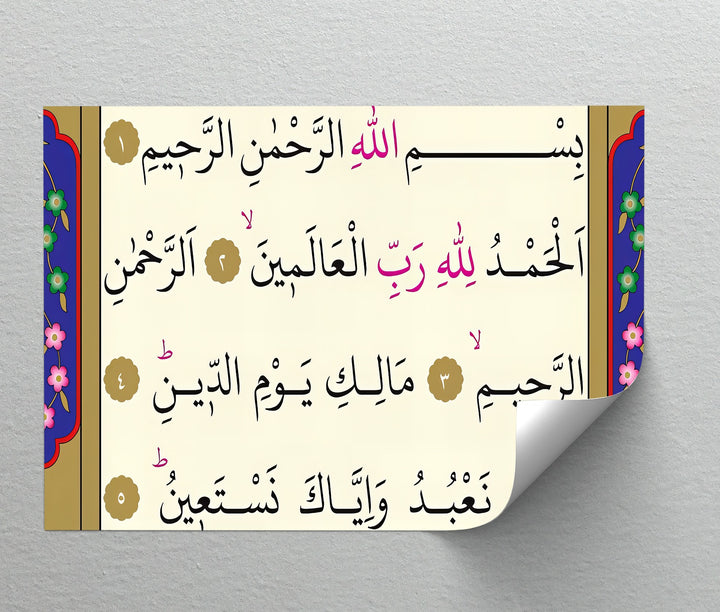 بِسْمِ اللّٰهِ الرَّحْمٰنِ الرَّح۪يمِ ١
اَلْحَمْدُ لِلّٰهِ رَبِّ الْعَالَم۪ينَ ۙ ٢ اَلرَّحْمٰنِ
الرَّح۪يمِ ۙ ٣ مَالِكِ يَوْمِ الدّ۪ينِ ۜ ٤
نَعْبُدُ وَاِيَّاكَ نَسْتَع۪ينُ ۜ ٥